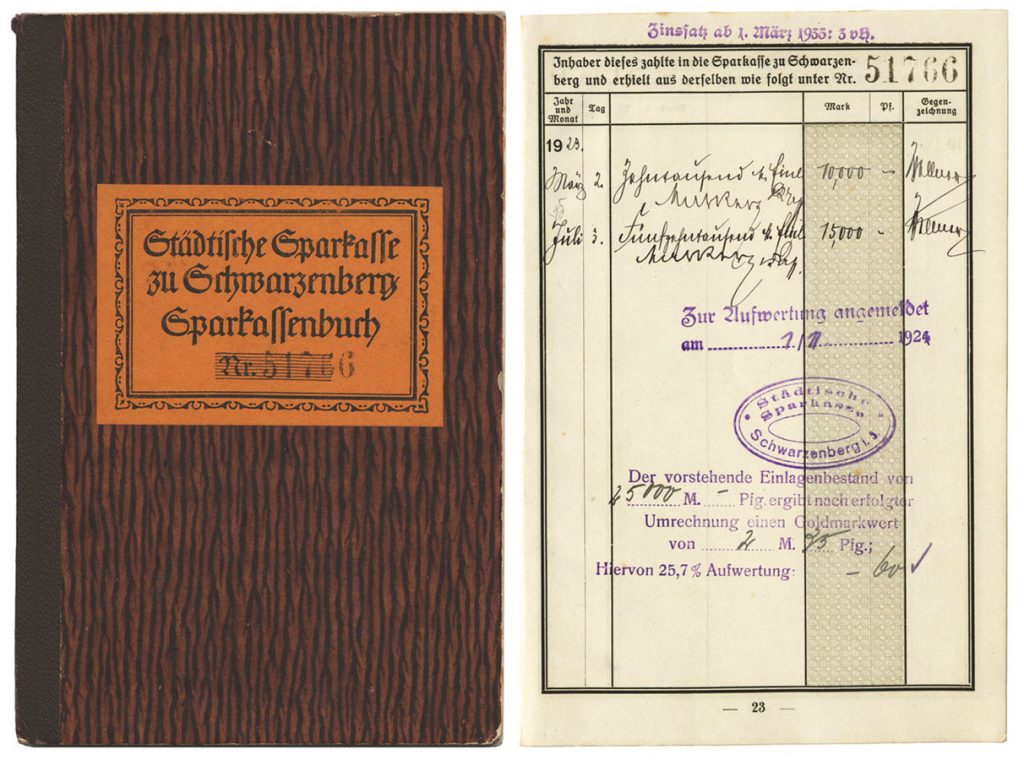 Städtische Sparkasse
zu Schwarzenberg
Sparkassenbuch
Nr. 51766
Zinssatz ab 1. März 1933: 3 vH.
Inhaber dieses zahlte in die Sparkasse zu Schwarzen-
berg und erhielt aus derselben wie folgt unter Nr. 51766
Jahr und Monat Tag Mark Pf. Gegen-zeichnung
1923.
März 2. Zehntausend 10,000 –
Mark
Juli 3. Fünfzehntausend 15,000 –
Mark
Zur Aufwertung angemeldet
am 1924
Städtische
Sparkasse
Schwarzenberg i. S.
Der vorstehende Einlagenbestand von
25000 M. – Pfg. ergibt nach erfolgter
Umrechnung einen Goldmarkwert
von 2 M. 35 Pfg.;
Hiervon 25,7% Aufwertung: – 60
— 23 —